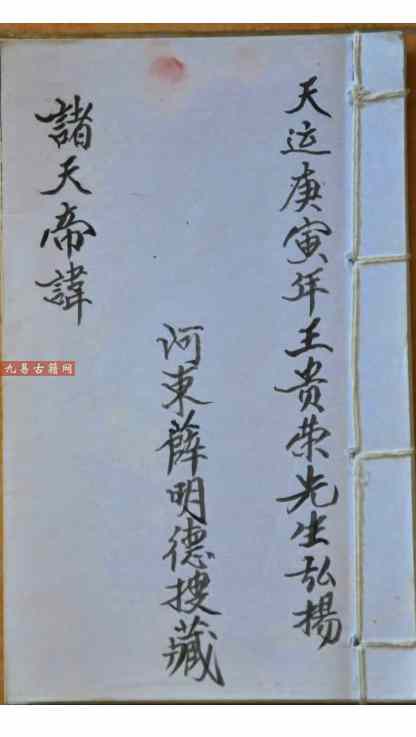 天运庚寅年王贵荣先生弘揚
河東薛明德搜藏
諸天帝諱
九易古籍网